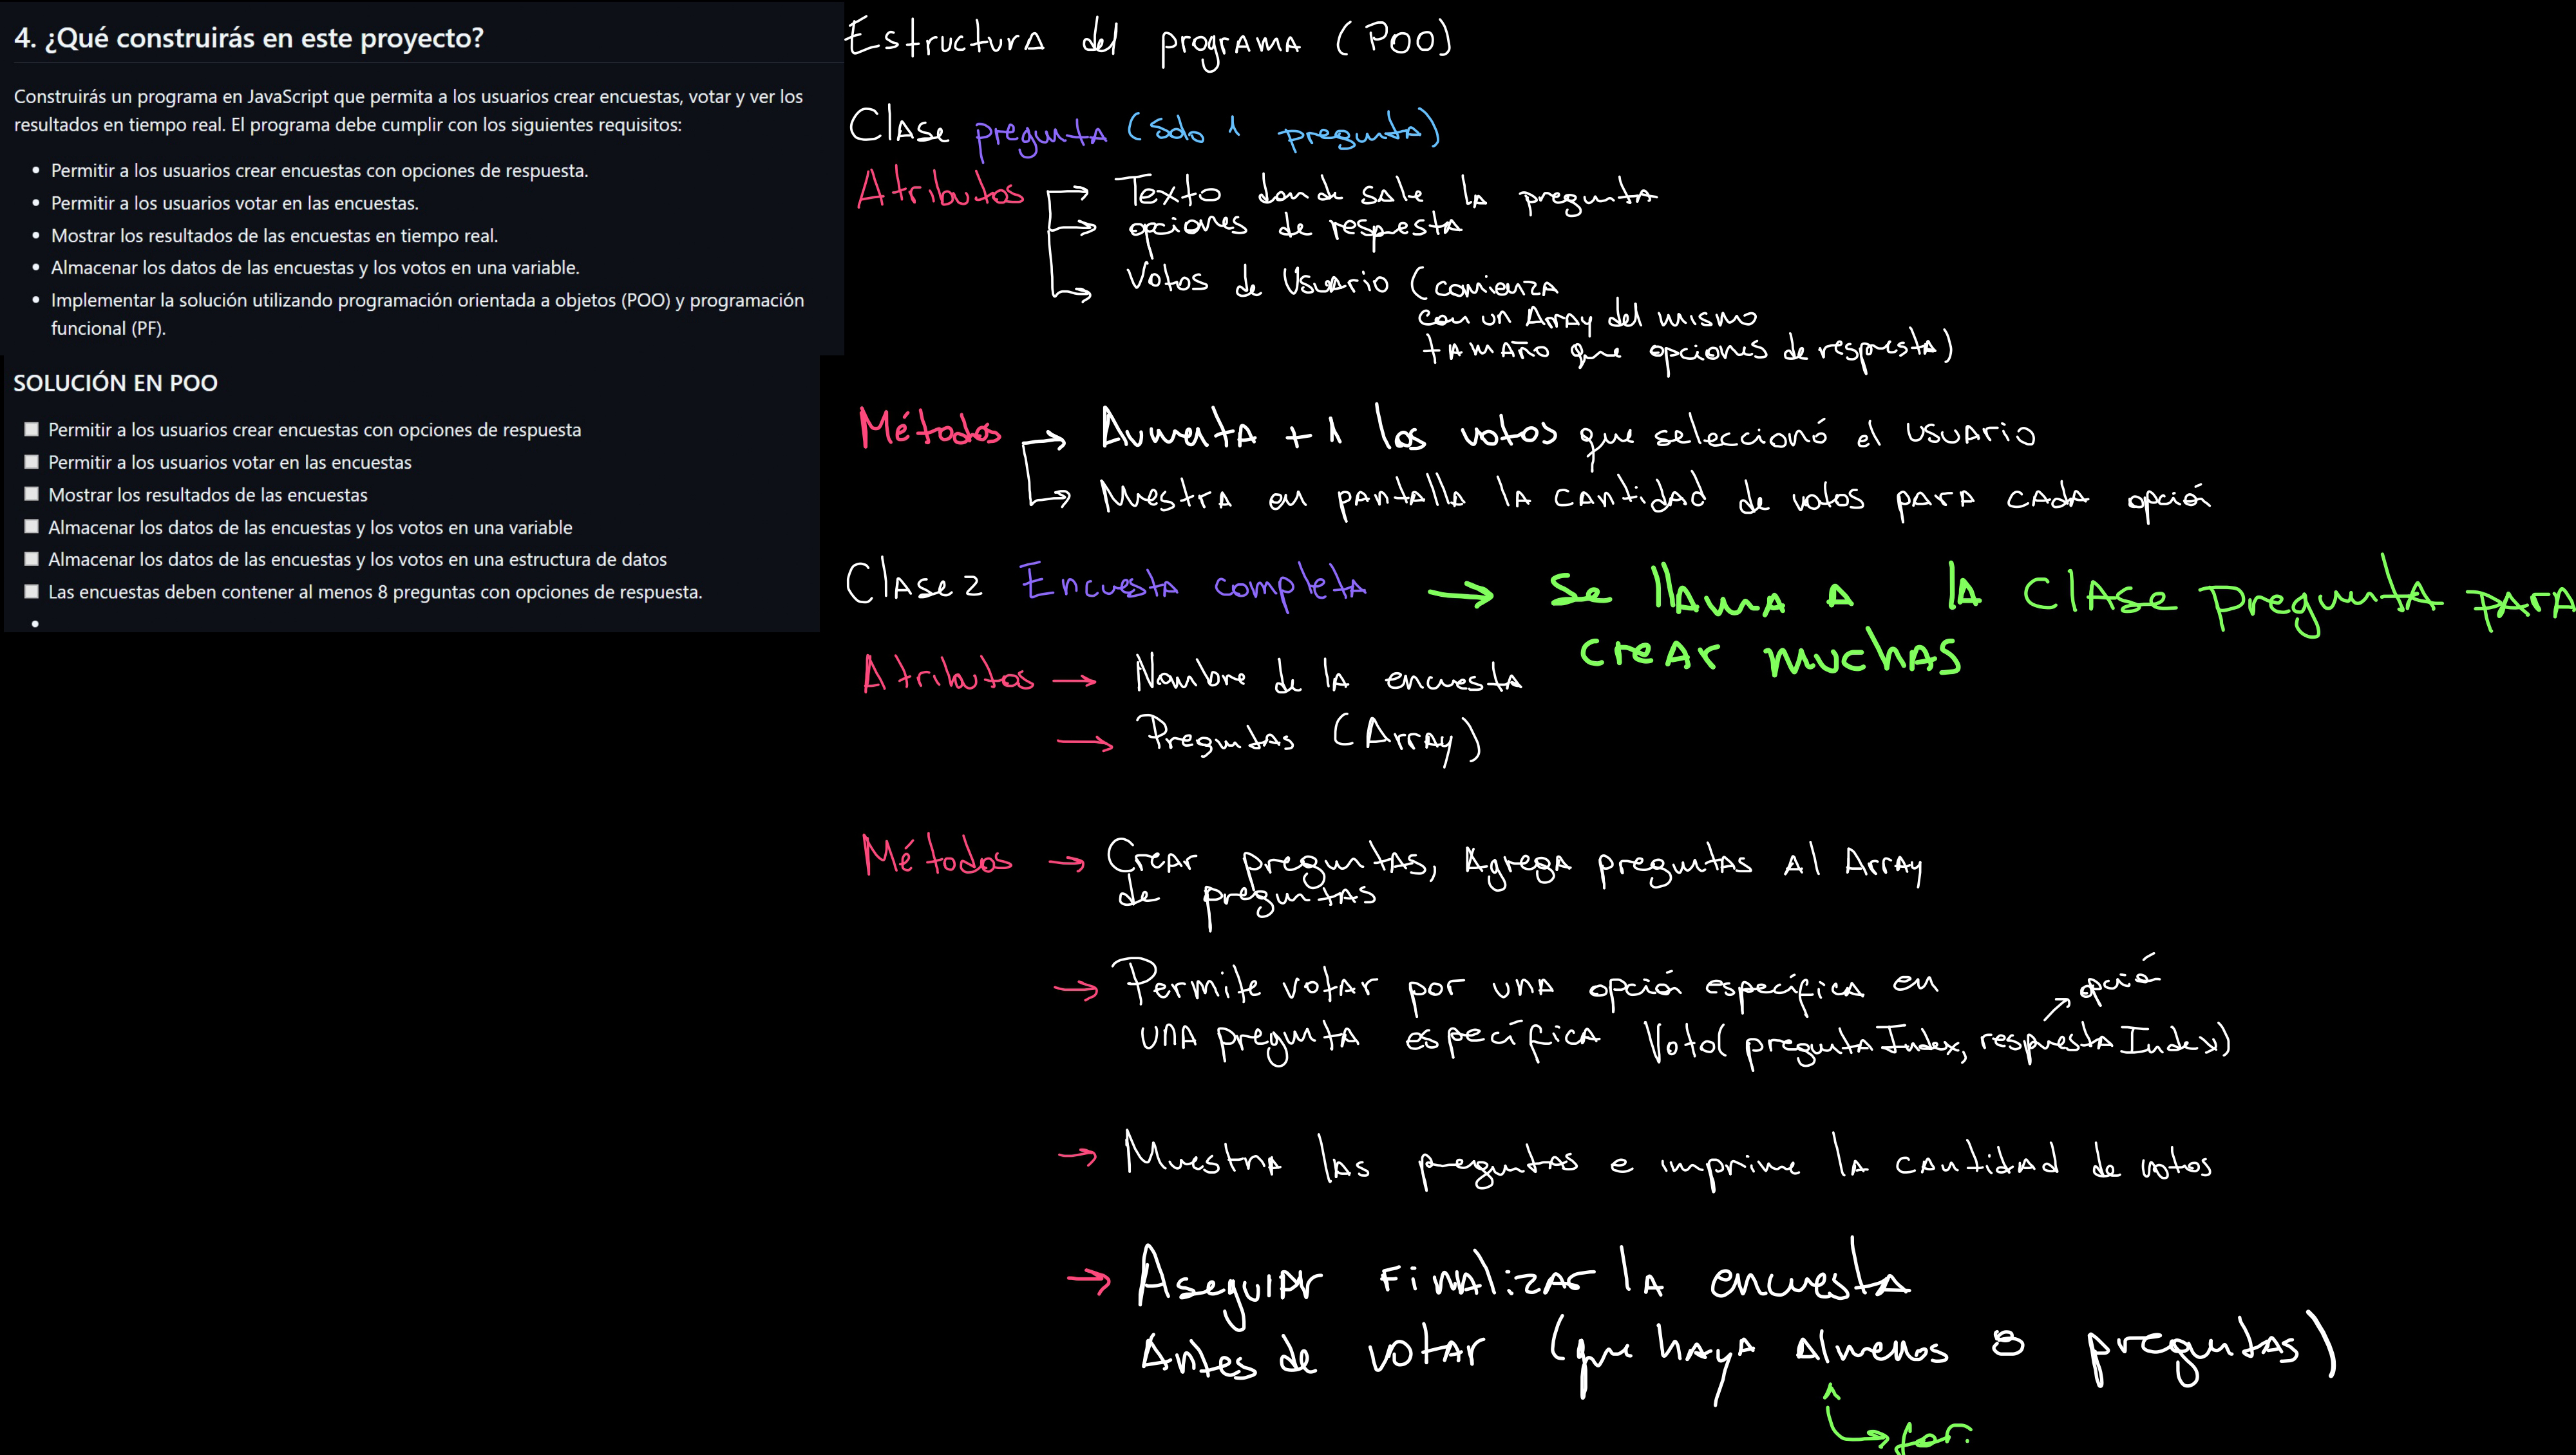 4. ¿Qué construirás en este proyecto?
Construirás un programa en JavaScript que permita a los usuarios crear encuestas, votar y ver los
resultados en tiempo real. El programa debe cumplir con los siguientes requisitos:
• Permitir a los usuarios crear encuestas con opciones de respuesta.
• Permitir a los usuarios votar en las encuestas.
• Mostrar los resultados de las encuestas en tiempo real.
• Almacenar los datos de las encuestas y los votos en una variable.
• Implementar la solución utilizando programación orientada a objetos (POO) y programación
funcional (PF).
SOLUCIÓN EN POO
Permitir a los usuarios crear encuestas con opciones de respuesta
Permitir a los usuarios votar en las encuestas
Mostrar los resultados de las encuestas
Almacenar los datos de las encuestas y los votos en una variable
Almacenar los datos de las encuestas y los votos en una estructura de datos
Las encuestas deben contener al menos 8 preguntas con opciones de respuesta.
Estructura del programa (POO)
Clase pregunta (Solo 1 pregunta)
Atributos → Texto donde sale la pregunta
→ opciones de respuesta
→ Votos de Usuario (comienza
con un Array del mismo
tamaño que opciones de respuesta)
Métodos → Aumenta +1 los votos que seleccionó el usuario
→ Muestra en pantalla la cantidad de votos para cada opción
Clase 2 Encuesta completa → Se llama a la Clase Pregunta para
crear muchas
Atributos → Nombre de la encuesta
→ Preguntas (Array)
Métodos → Crear preguntas, Agrega preguntas al Array
de preguntas
→ Permite votar por una opción específica en
una pregunta específica Voto(preguntaIndex, respuestaIndex)
↗ opción
→ Muestra las preguntas e imprime la cantidad de votos
→ Asegurar Finalizar la encuesta
Antes de votar (que haya almenos 8 preguntas)
→ for.